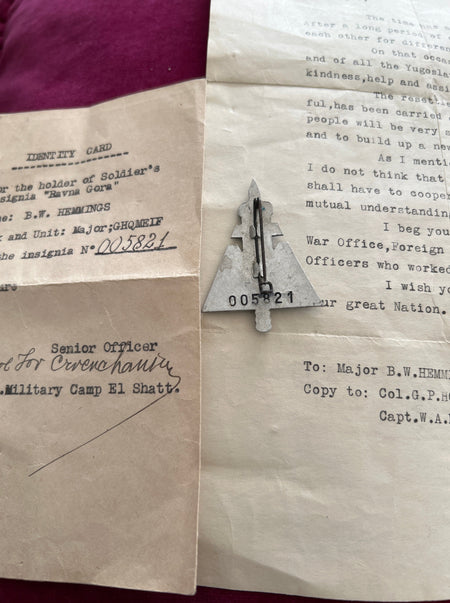 IDENTITY CARD
or the holder of Soldier's
nsignia "Ravna Gora"
e: B.W. HEMMINGS
k and Unit: Major;GHQMEIF
he insignia Nº 005821
are
Senior Officer
for
.Military Camp El Shatt.
005821
The time has
After a long period of
each other for differen
On that occas
and of all the Yugosla
kindness,help and assi
The resettl
ful,has been carried
people will be very s
and to build up a new
As I mentic
I do not think that
shall have to cooper
mutual understanding
I beg you
War Office,Foreign
Officers who worked
I wish yo
ur great Nation.
To: Major B.W.HEMM
Copy to: Col.G.P.H
Capt.W.A.